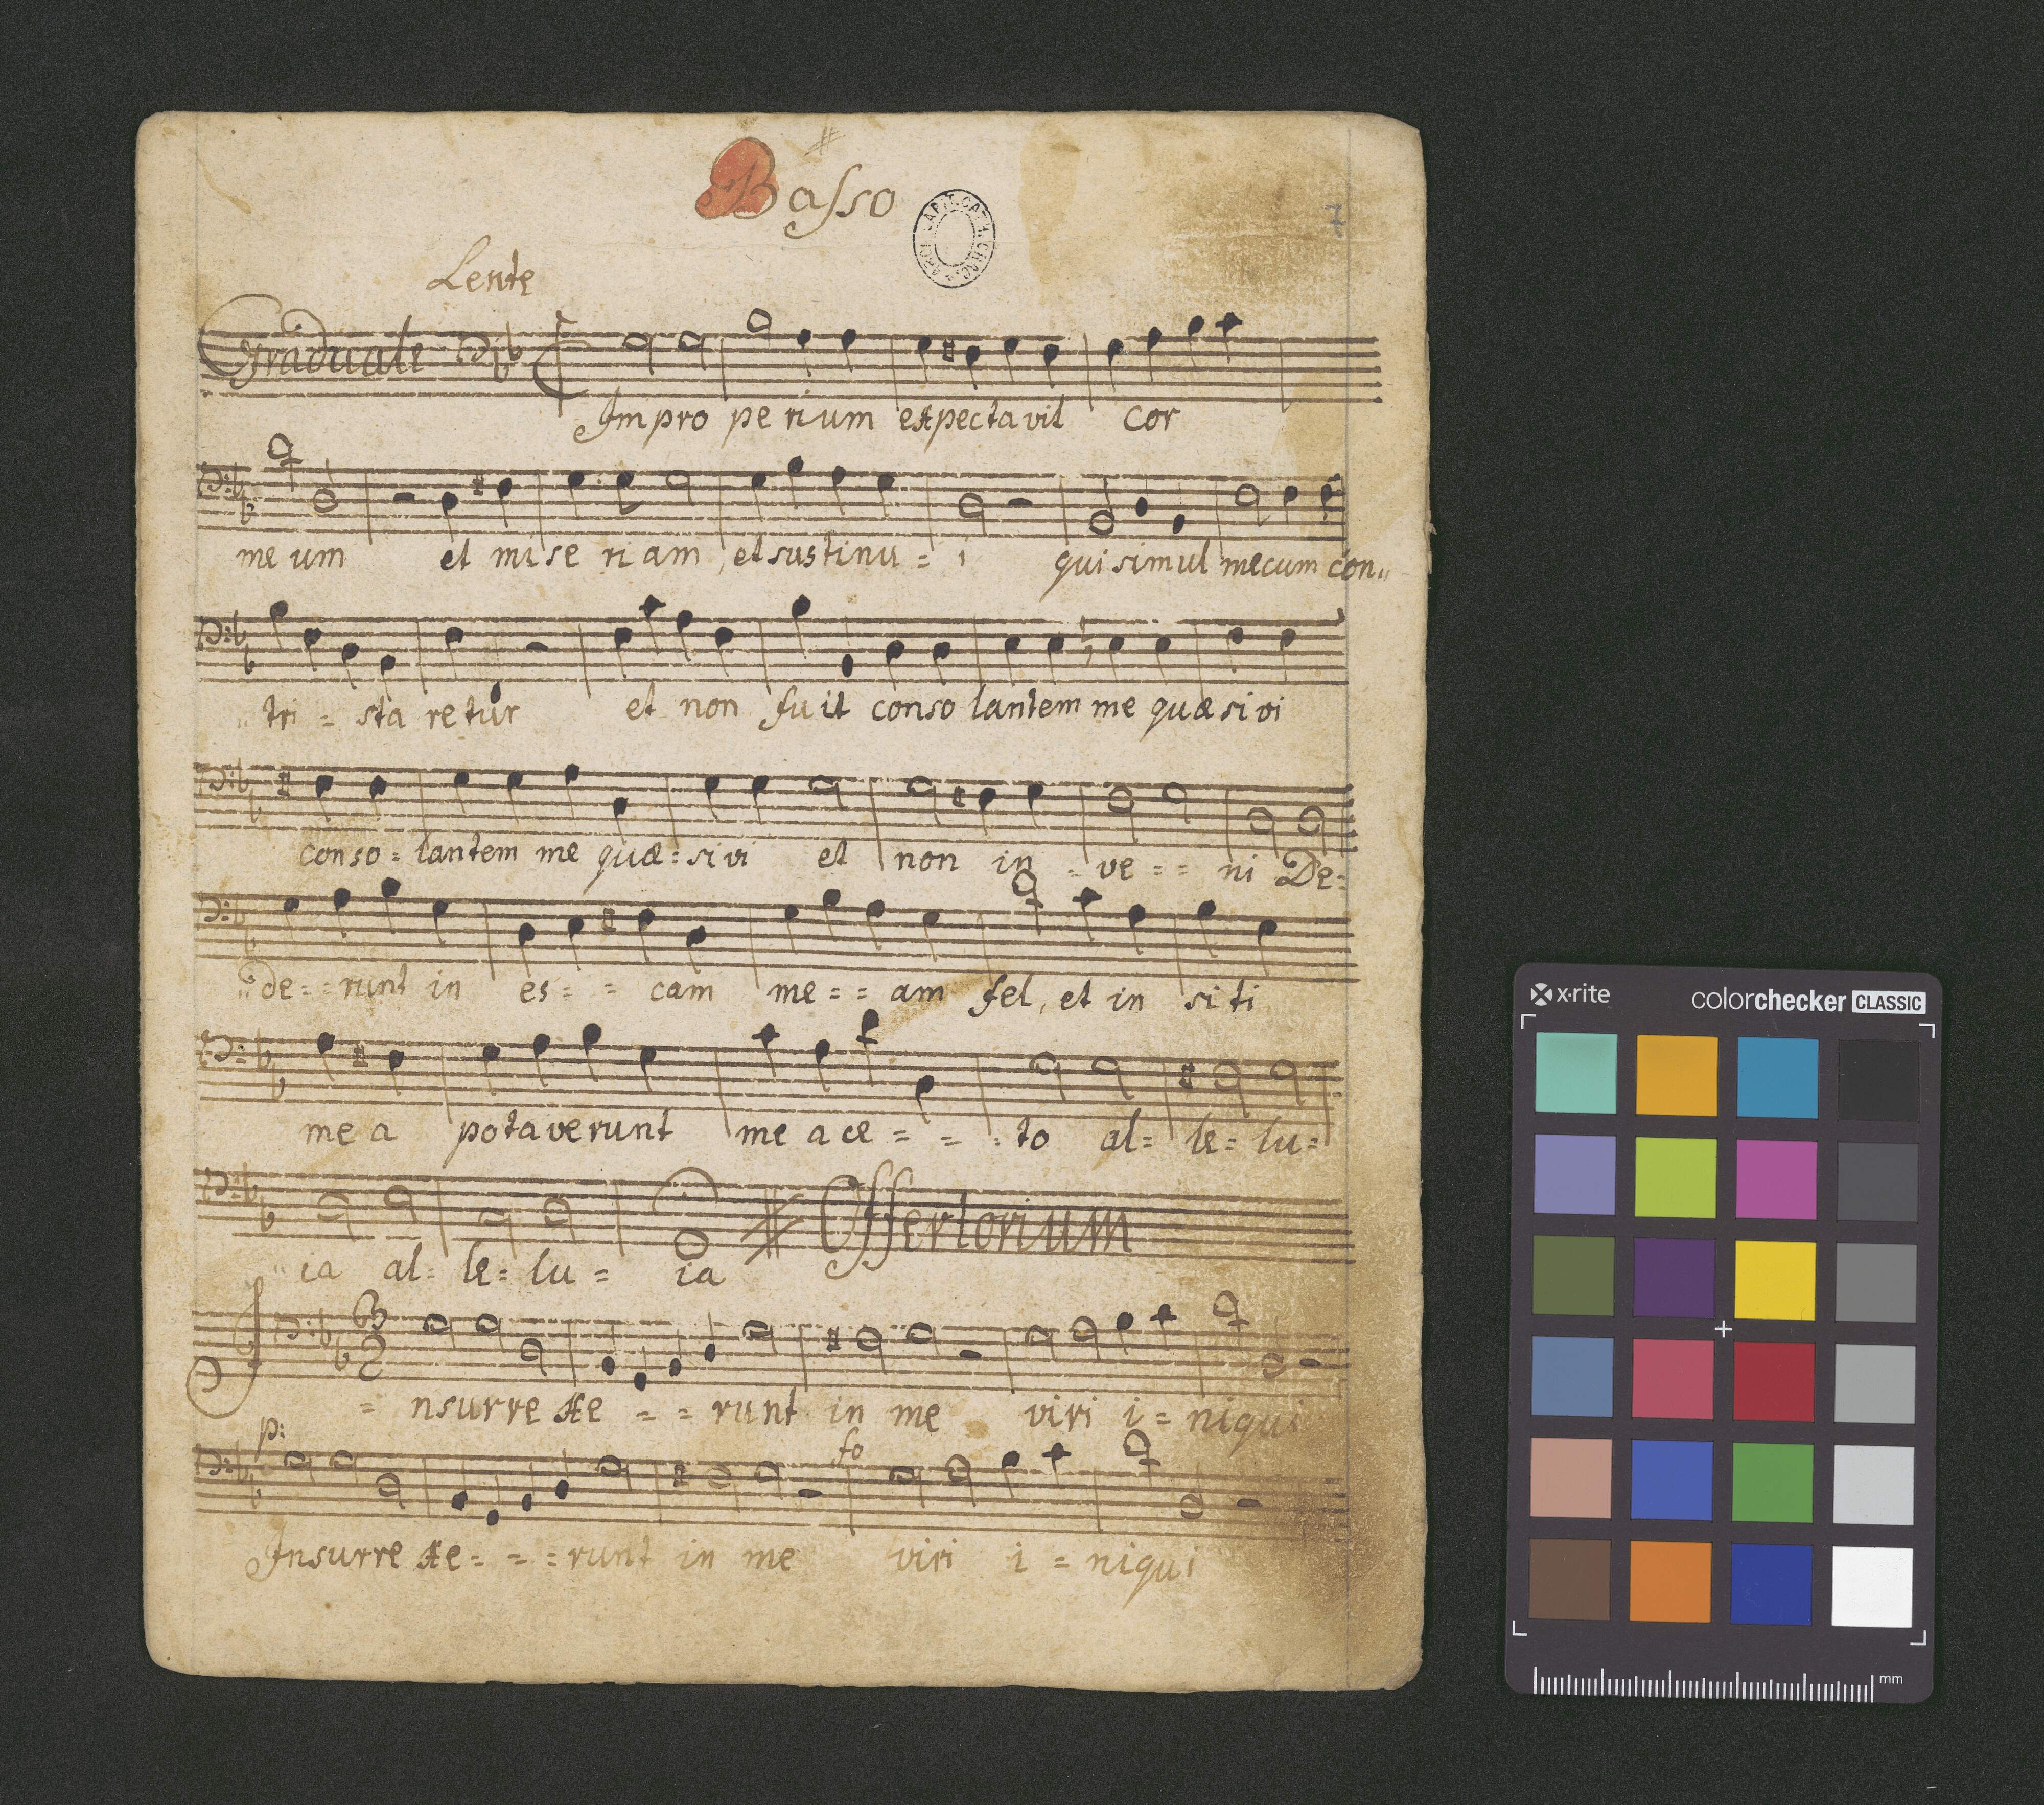 Basso
7
Lente
Graduale
Impro pe rium expecta vit cor
me um et mi se ri am, et sustinu = i qui simul mecum con„
„tri = sta retur et non fuit conso lantem me quæ si vi
conso = lantem me quæ = si vi et non in = ve = = ni De =
„de = = runt in es = = cam me = = am fel, et in si ti
me a pota ve runt me a ce = = = to al = le = lu =
„ia al = le = lu = ia Offertorium
I = nsurre xe = = runt in me viri i = niqui
p: fo
Insurre xe = = = runt in me viri i = niqui
x·rite colorchecker CLASSIC
mm